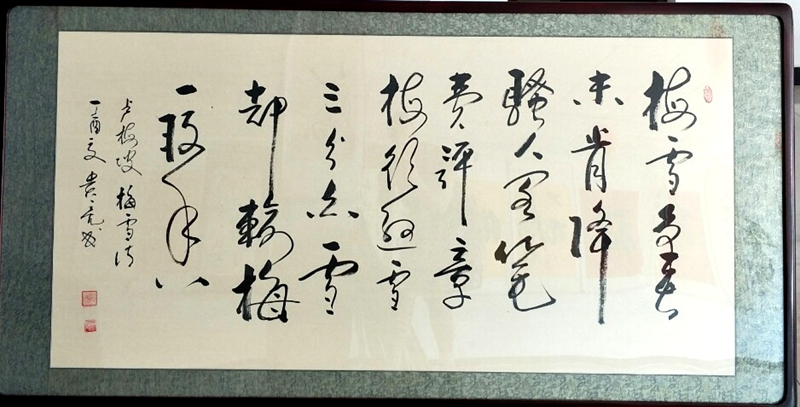 梅雪争春
未肯降
骚人阁笔
费评章
梅须逊雪
三分白雪
却输梅
一段香
卢梅坡 梅雪诗
丁酉夏 贵亮书